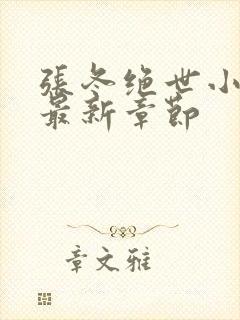 張冬绝世小
最新章節
章文雅